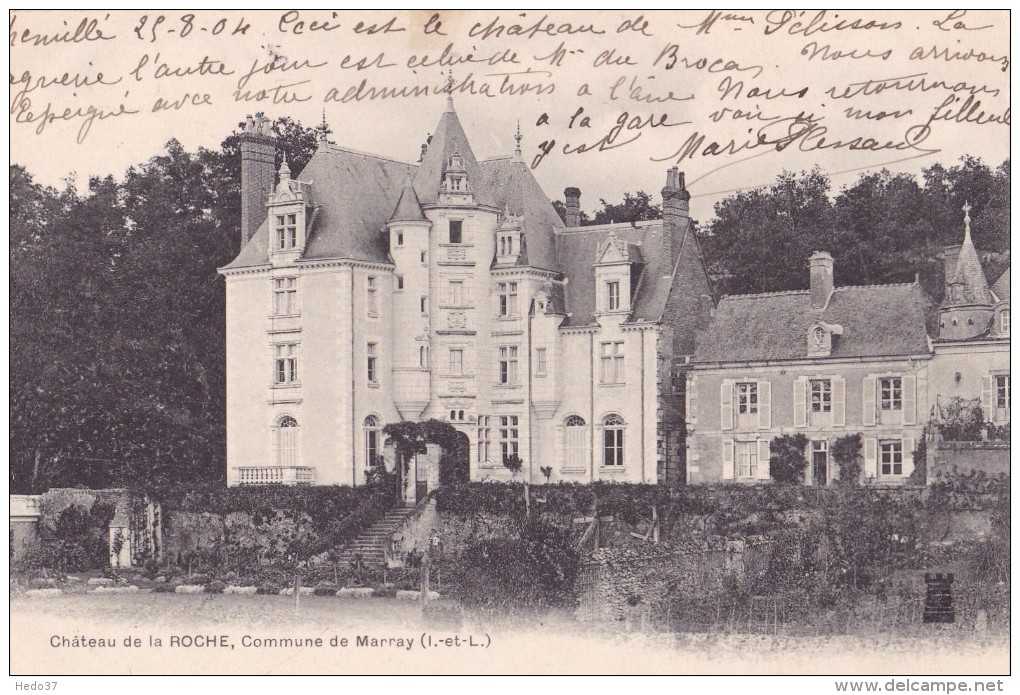 hemillé 25-8-04 Ceci est le château de Mme Pélisson. La
l'autre jour est celui de Mr du Brocas. Nous arrivons
Epeigné avec notre administration à l'âne. Nous retournons
à la gare voir si mon filleul
y est Marie
Château de la ROCHE, Commune de Marray (I.-et-L.)
Hedo37
www.delcampe.net